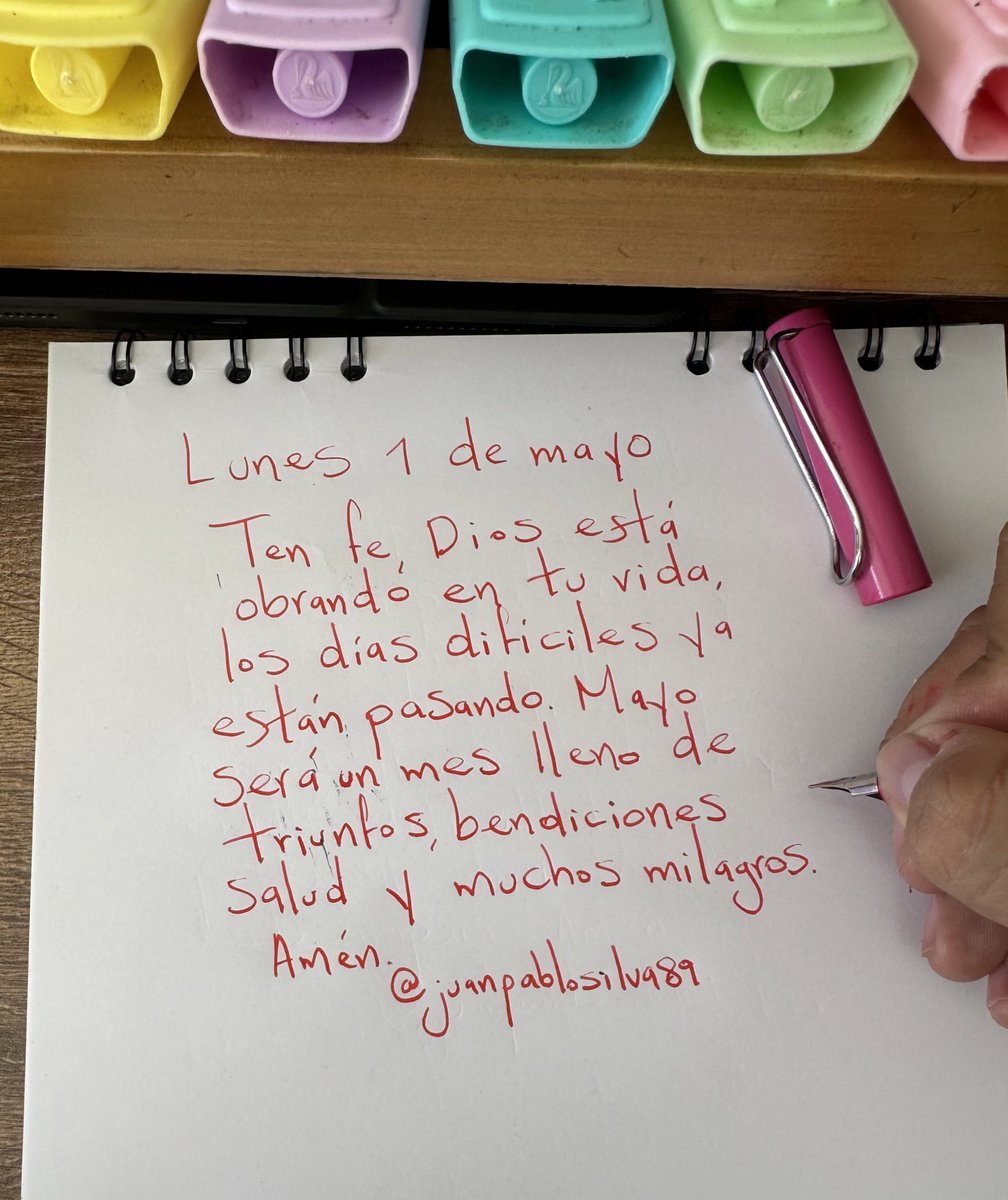 Lunes 1 de mayo
Ten fe, Dios está
obrandó en tu vida,
los días difíciles ya
están pasando. Mayo
será un mes lleno de
triunfos, bendiciones
salud y muchos milagros.
Amén.
@juanpablosilva89